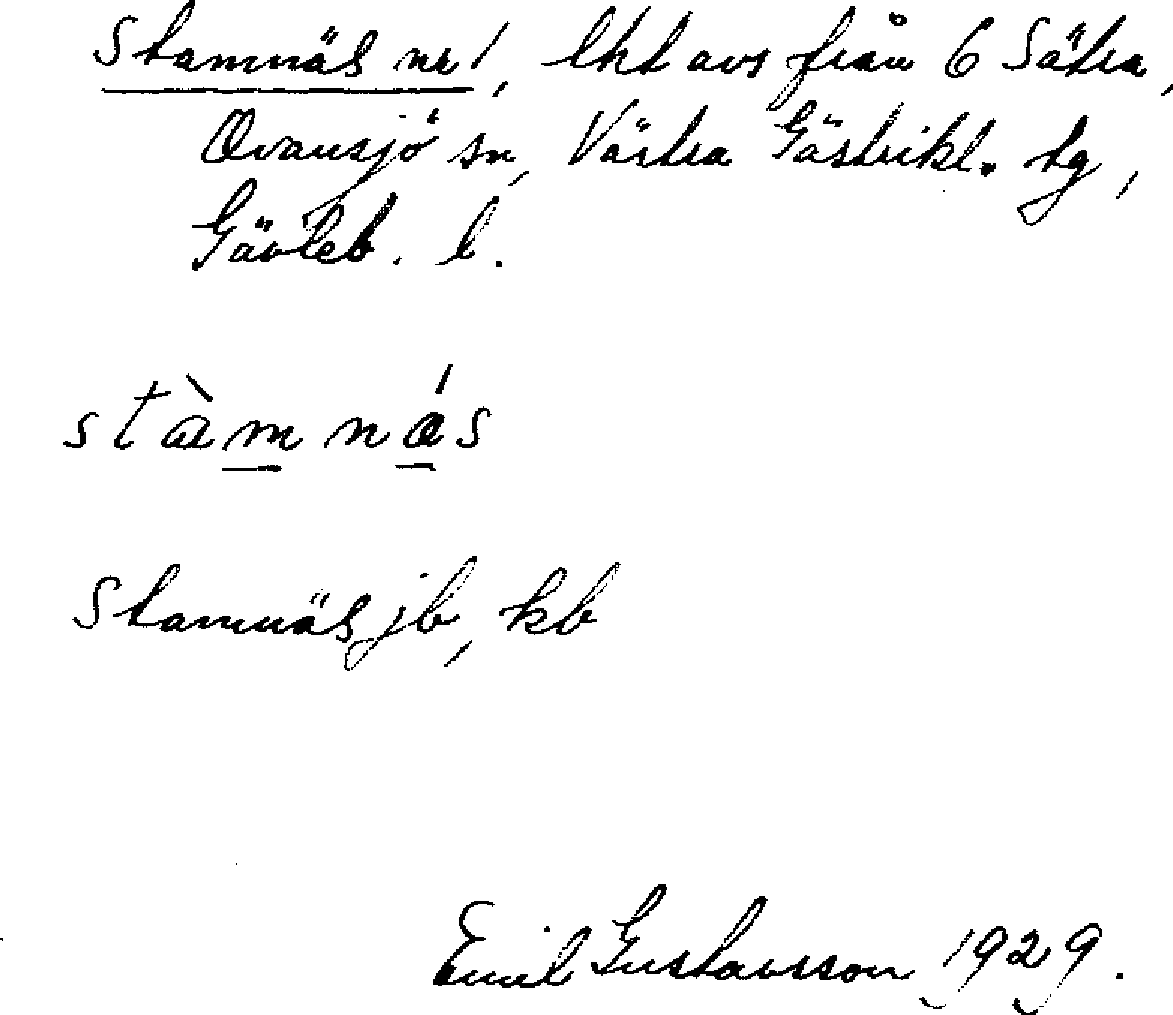 Stamnäs nr 1, lht avs från 6 Sätra,
Ovansjö sn, Västra Gästrikl. tg,
Gävleb. l.
stàmnás
Stamnäs jb, kb
Emil Gustavsson 1929.